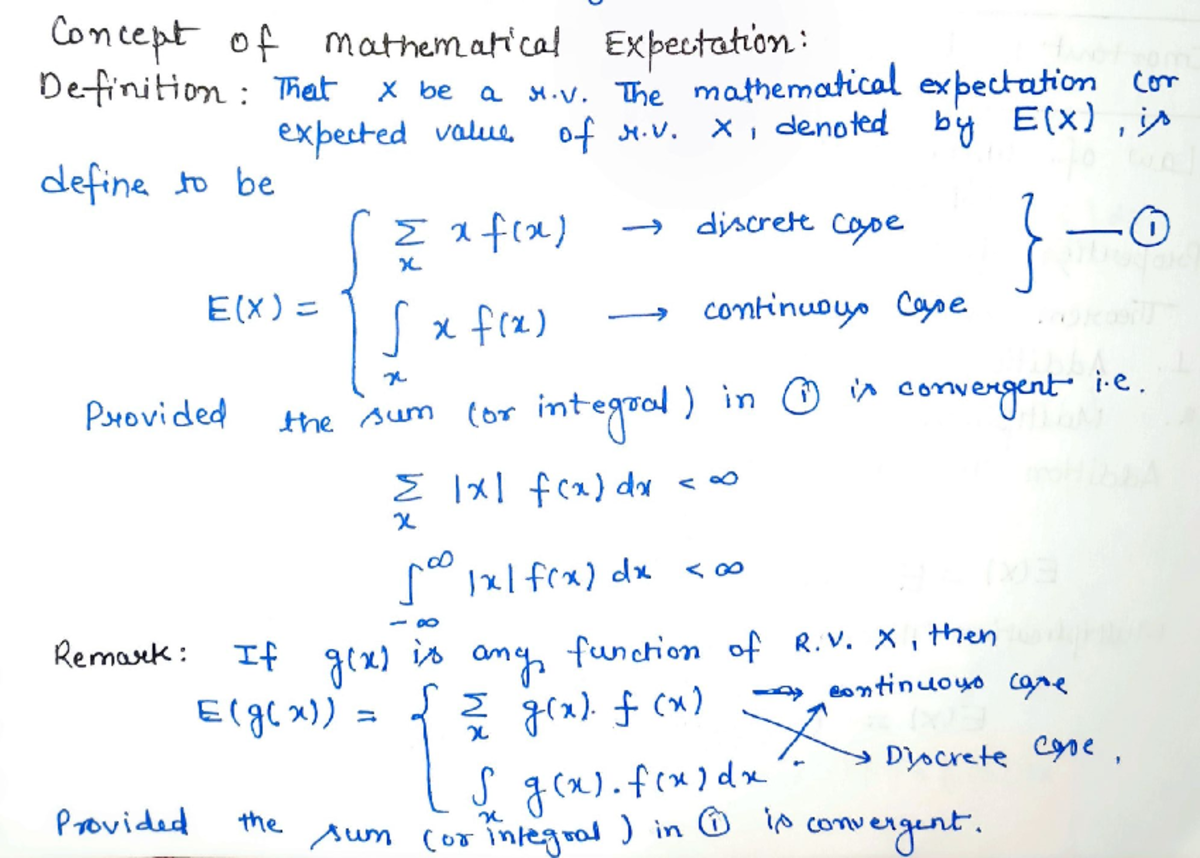 Concept of Mathematical Expectation:
Definition: That X be a r.v. The mathematical expectation (or
expected value of r.v. X, denoted by E(X), is
define to be
E(X) = { Σ_x x f(x) → discrete case } — ①
∫_x x f(x) → continuous case
Provided the sum (or integral) in ① is convergent i.e.
Σ_x |x| f(x) dx < ∞
∫_{-∞}^{∞} |x| f(x) dx < ∞
Remark: If g(x) is any function of R.V. X, then
E(g(x)) = { Σ_x g(x). f(x) → continuous case
∫_x g(x). f(x) dx → Discrete case,
Provided the sum (or integral) in ① is convergent.